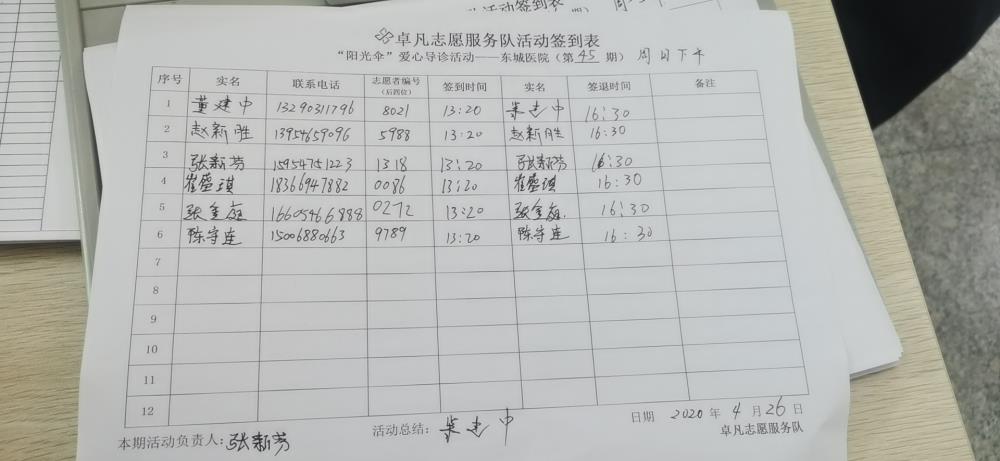 卓凡志愿服务队活动签到表
“阳光伞”爱心导诊活动——东城医院（第 45 期） 周日下午
序号 实名 联系电话 志愿者编号（后四位） 签到时间 实名 签退时间 备注
1 董建中 13290311796 8021 13:20 建中 16:30
2 赵新胜 13954659096 5988 13:20 赵新胜 16:30
3 张新芳 15954751223 1318 13:20 张新芳 16:30
4 崔盛琪 18366947882 0086 13:20 崔盛琪 16:30
5 张金庭 16605466888 0272 13:20 张金庭 16:30
6 陈守连 15006880663 9789 13:20 陈守连 16:30
7
8
9
10
11
12
本期活动负责人：张新芳 活动总结： 建中 日期 2020 年 4 月 26 日
卓凡志愿服务队